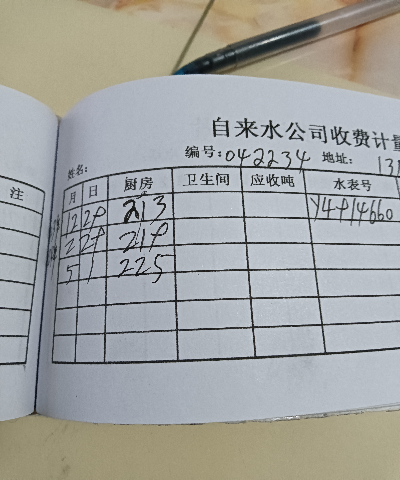 自来水公司收费计量
编号:042234 地址: 131
姓名:
注
月 日 厨房 卫生间 应收吨 水表号
12 29 213 Y4914660
2 29 219
5 1 225